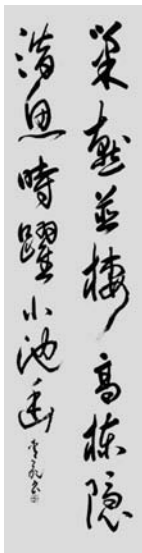 巢燕並棲高棟隱
潛魚時躍小池幽